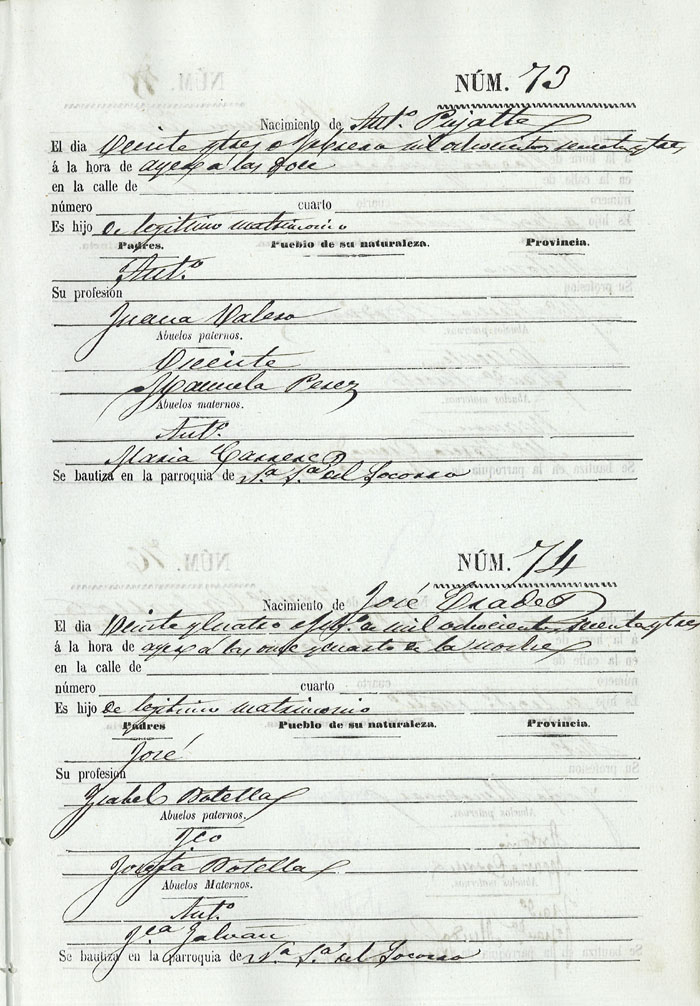 NÚM. 73
Nacimiento de Antº Pujalte
El dia Veinte y tres Febrero mil ochocientos setenta y tres
á la hora de ayer á las doce
en la calle de
número cuarto
Es hijo de legitimo matrimonio
Padres. Pueblo de su naturaleza. Provincia.
Antº
Su profesión
Juana Valero
Abuelos paternos.
Vicente
Manuela Perez
Abuelos maternos.
Antº
Maria Carrere
Se bautiza en la parroquia de Nª Sª del Socorro
NÚM. 74
Nacimiento de José
El dia Veinte y cuatro de mil ochocientos setenta y tres
á la hora de ayer á las once y cuarto de la noche
en la calle de
número cuarto
Es hijo de legitimo matrimonio
Padres Pueblo de su naturaleza. Provincia.
José
Su profesión
Ysabel Botella
Abuelos paternos.
Fco
Josefa Botella
Abuelos Maternos.
Antº
Fca Galvan
Se bautiza en la parroquia de Nª Sª del Socorro